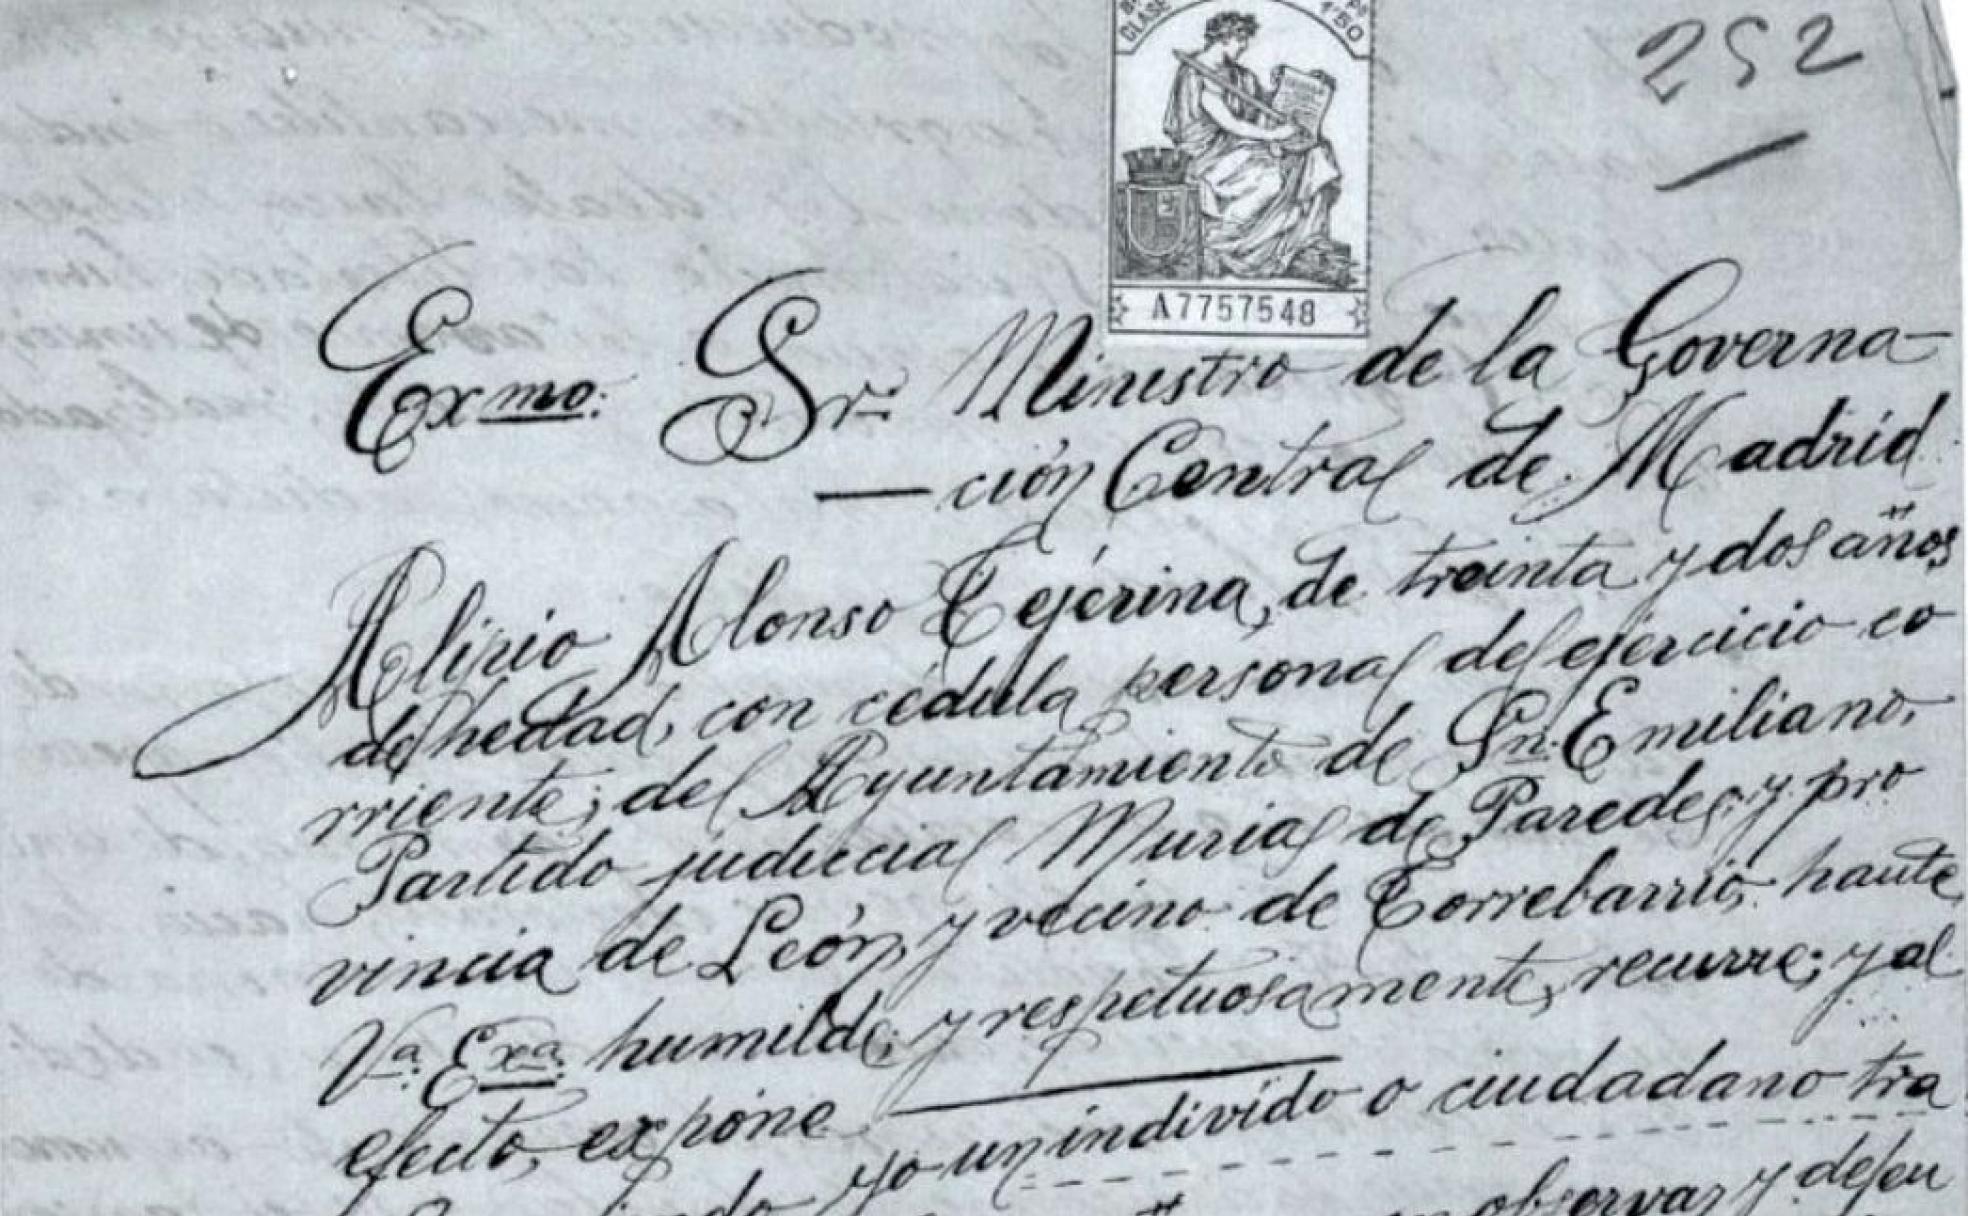 CLASE 1'50
252
A7757548
Exmo: Sr: Ministro de la Governa-
—ción Central de Madrid
Alipio Alonso Tejérina, de treinta y dos años
de hedad, con cédula personal del ejercicio co
rriente; del Ayuntamiento de Sn. Emiliano,
Partido judiccial Murias de Paredes; y pro
vincia de León, y vecino de Torrebarrio, hante
Va. Exa. humilde; y respetuosamente, recurre; y al
efecto, expone
yo un individo o ciudadano tra
observar y defen